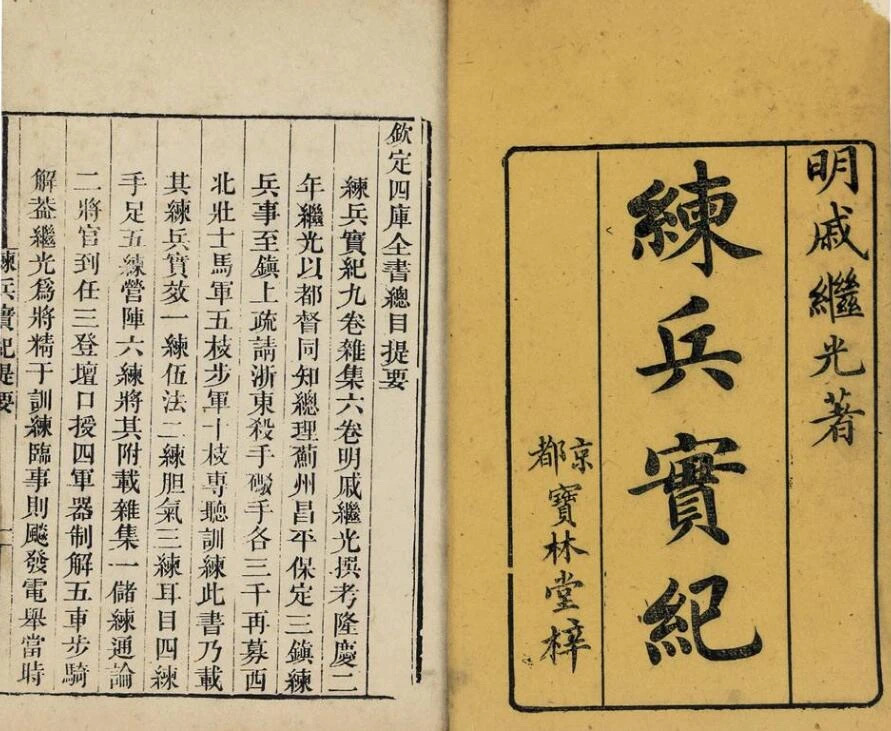 明戚繼光著
練兵實紀
京都寶林堂梓
欽定四庫全書總目提要
練兵實紀九卷雜集六卷明戚繼光撰考隆慶二
年繼光以都督同知總理薊州昌平保定三鎮練
兵事至鎮上疏請浙東殺手礮手各三千再募西
北壯士馬軍五枝步軍十枝專聽訓練此書乃載
其練兵實效一練伍法二練胆氣三練耳目四練
手足五練營陣六練將其附載雜集一儲練通論
二將官到任三登壇口授四軍器制解五車步騎
解葢繼光爲將精于訓練臨事則飈發電舉當時
練兵實紀提要
一